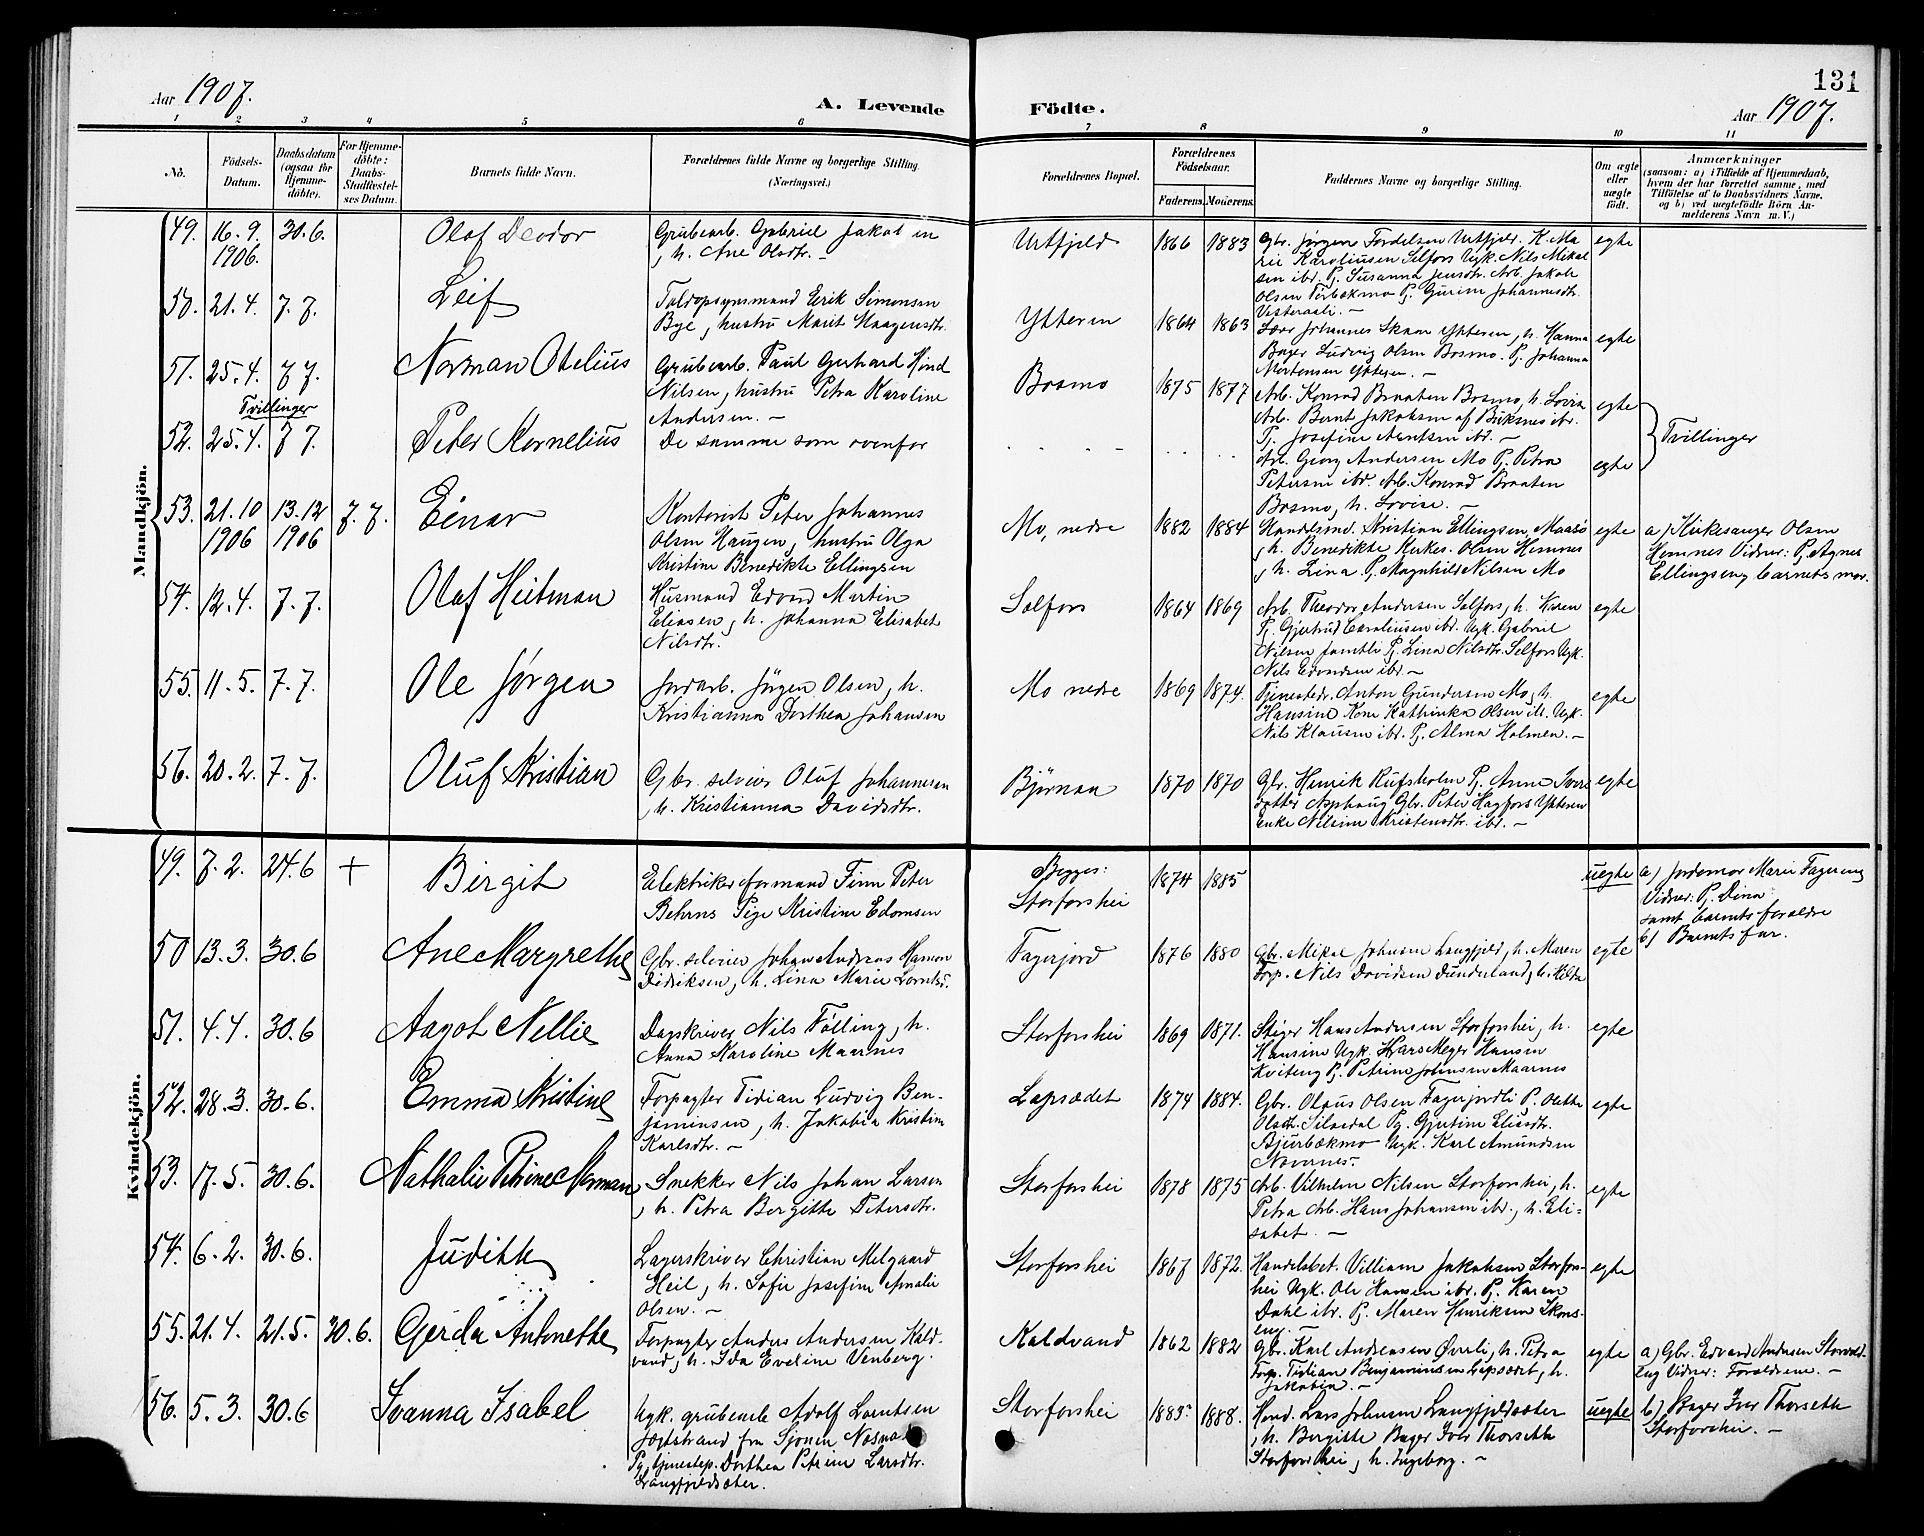 131
Aar 1907.
A. Levende Födte.
Aar 1907.
1 2 3 4 5 6 7 8 9 10 11
No.
Födsels-Datum.
Daabsdatum (ogsaa for Hjemme-döbte).
For Hjemme-döbte: Daabs-Stadfæstel-ses Datum.
Barnets fulde Navn.
Forældrenes fulde Navne og borgerlige Stilling.
(Næringsvei.)
Forældrenes Bopæl.
Forældrenes Födselsaar.
Faderens. Moderens.
Faddernes Navne og borgerlige Stilling.
Om ægte eller uægte födt.
Anmærkninger
(saasom: a) i Tilfælde af Hjemmedaab,
hvem der har forrettet samme, med
Tilföielse af to Daabsvidners Navne,
og b) ved uegtefödte Börn An-
melderens Navn m. V.)
Mandkjön.
49. 16.9. 1906. 30.6. Olaf Deodor
Grubearb. Gabriel Jakobsen
, h. Ane Olsdtr. -
Urtfjeld 1866 1883
Gbr. Jørgen Fordelsen Urtfjeld. K. Ma
rie Karoliusen Selfors Ugk. Nils Mikal
sen ibr. Pj. Susanna Jensdtr. Arb. Jakob
Olsen Torbækmo Pj. Gurine Johannesdtr.
Vesteraali. -
egte
50. 21.4. 7.7. Leif
Toldopsynsmand Eerik Simonsen
Bye, hustru Marit Haagensdtr.
Ytteren 1864 1863
Lærer Johannes Skaar Ytteren, h. Hanna
Bager Ludvig Olsen Bosmo. Pj. Johanna
Mortensen Ytteren. -
egte
51. 25.4. 7.7. Norman Otelius
Tvillinger
Grubearb. Paul Gerhard Hind
Nilsen, hustru Petra Karoline
Andersen. -
Bosmo 1875 1877
Arb. Konrad Braaten Bosmo, h. Lovise
Arb. Bernt Jakobsen af Buksnes ibr.
Pj. Josefine Arntsen ibr. -
egte
Tvillinger
52. 25.4. 7.7. Peter Kornelius
De samme som ovenfor
Arb. Georg Andersen Mo Pj. Petra
Petersen ibr. Arb. Konrad Braaten
Bosmo, h. Lovise. -
egte
53. 21.10 1906 13.12 1906 7.7. Einar
Kontorist Peter Johannes
Olsen Haugen, hustru Olga
Kristine Benedikte Ellingsen
Mo, nedre 1882 1884
Handelsmd. Kristian Ellingsen Maasø
, h. Benedikte Kirkes. Olsen Hemnes
, h. Lina. Pj. Magnhild Nilsen Mo
egte
a) Kirkesanger Olsen
Hemnes Vidner: Pj. Agnes
Ellingseng barnets mor.
54. 12.4. 7.7. Olaf Heitman
Husmand Edvard Martin
Eliasen, h. Johanna Elisabet
Nilsdtr.
Selfors 1864 1869
Arb. Theodor Andersen Selfors, h. Karen
Pj. Gjertrud Caroliusen ibr. Ugk. Gabriel
Nilsen Jamtli Pj. Lina Nilsdtr. Selfors Ugk.
Nils Edvardsen ibr. -
egte
55. 11.5. 7.7. Ole Jørgen
Jordarb. Jörgen Olsen, h.
Kristianna Dorthea Johansen
Mo nedre 1869 1874.
Tjenestedr. Anton Gundersen Mo, h.
Hansine Kone Kathinka Olsen ib. Ugk.
Nils Klausen ibr. Pj. Alma Holmen. -
egte
56. 20.2. 7.7. Oluf Kristian
Gbr. selveier Oluf Johannesen
, h. Kristianna Davidsdtr.
Bjørnaa 1870 1870
Gbr. Henrik Rufsholm Pj. Anne Ivers
datter Asphaug Gbr. Peter Hagfors Ytteren
Enke Nilsine Kristensdtr. ibr. -
egte
Kvindekjön.
49. 7.2. 24.6 + Birgit
Elektrikerformand Finn Peter
Behrns Pige Kristine Edomsen
Begges:
Storforshei 1874 1885
uegte
a) Jordemor Marie Fagereng
Vidner: Pj. Dina
samt barnets forældre
b) Barnets far.
50 13.3. 30.6 Ane Margrethe
Gbr. selveier Johan Andreas Hamen
Didriksen, h. Lina Marie Lorntsd.
Fagerjord 1876 1880
Gbr. Mikal Johnsen Langfjeld, h. Maren
Forp. Nils Davidsen Dunderland, h. Hilda
egte
51. 4.4. 30.6 Aagot Nellie
Dagskriver Nils Følling, h.
Anna Karoline Maarnes
Storforshei 1869 1871.
Stiger Hans Andersen Storforshei, h.
Hansine Ugk. Hans Meyer Hansen
Kviteng Pj. Petrine Johnsen Maarnes
egte
52. 28.3. 30.6. Emma Kristine
Forpagter Tidian Ludvig Ben-
jaminsen, h. Jakobia Kristine
Karlsdtr. -
Lapsædet 1874 1884.
Gbr. Olaus Olsen Fagerjordli P. Oletta
Olsdtr. Silsedal Pg. Gjertine Eliasdtr.
Bjurbækmo Ugk. Karl Amundsen
Nævernes.
egte
53. 17.5. 30.6. Nathalie Petrine Norman
Snekker Nils Johan Larsen
, h. Petra Bergitte Petersdtr.
Storforshei 1878 1875
Arb. Vilhelm Nilsen Storforshei, h.
Petra Arb. Hans Johansen ibr., h. Eli-
sabet. -
egte
54. 6.2. 30.6. Judith
Lagerskriver Christian Melgaard
Heil, h. Sofie Josefine Amalie
Olsen. -
Storforshei 1867 1872.
Handelsbet. Villiam Jakobsen Storfors-
hei Ugk. Ole Hansen ibr. Pj. Karen
Dahl ibr. Pj. Maren Henriksen Skons-
eng. -
egte
55. 21.4. 21.5. 30.6. Gerda Antonette
Forpagter Anders Andersen Kald-
vand, h. Ida Eveline Venberg.
Kaldvand 1862 1882
Gbr. Karl Andreasen Øvreli, h. Petra
Forp. Tidian Benjaminsen Lapsædet, h.
Jakobia. -
egte
a) Gbr. Edvard Andersen Storvold-
eng Vidner: Forældrene. -
56. 5.3. 30.6 Ivanna Isabel
Ugk. grubearb Adolf Lorntsen
Jægtstrand fra Sjonen Nesna
Pg. tjenestep. Dorthea Petrine Larsdtr.
Langfjeldsæter.
Storforshei 1883. 1888.
Hmd. Lars Johnsen Langfjeldsæter
, h. Bergitte Bager Iver Thorseth
Storforshei, h. Ingeborg. -
uegte
b) Bager Iver Thorseth
Storforshei. -